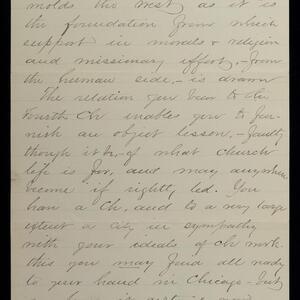 molds the rest, as it is
the foundation from which
support in morals & religion
and missionary effort, - from
the human side, - is drawn
The relation you bear to the
Fourth Ch enables you to fur-
nish an object lesson, - faulty
though it be, - of what church
life is for, and may anywhere
become if rightly led. You
have a Ch. and to a very large
extent a city in sympathy
with your ideals of ch work.
this you may find all ready
to your hand in Chicago - but